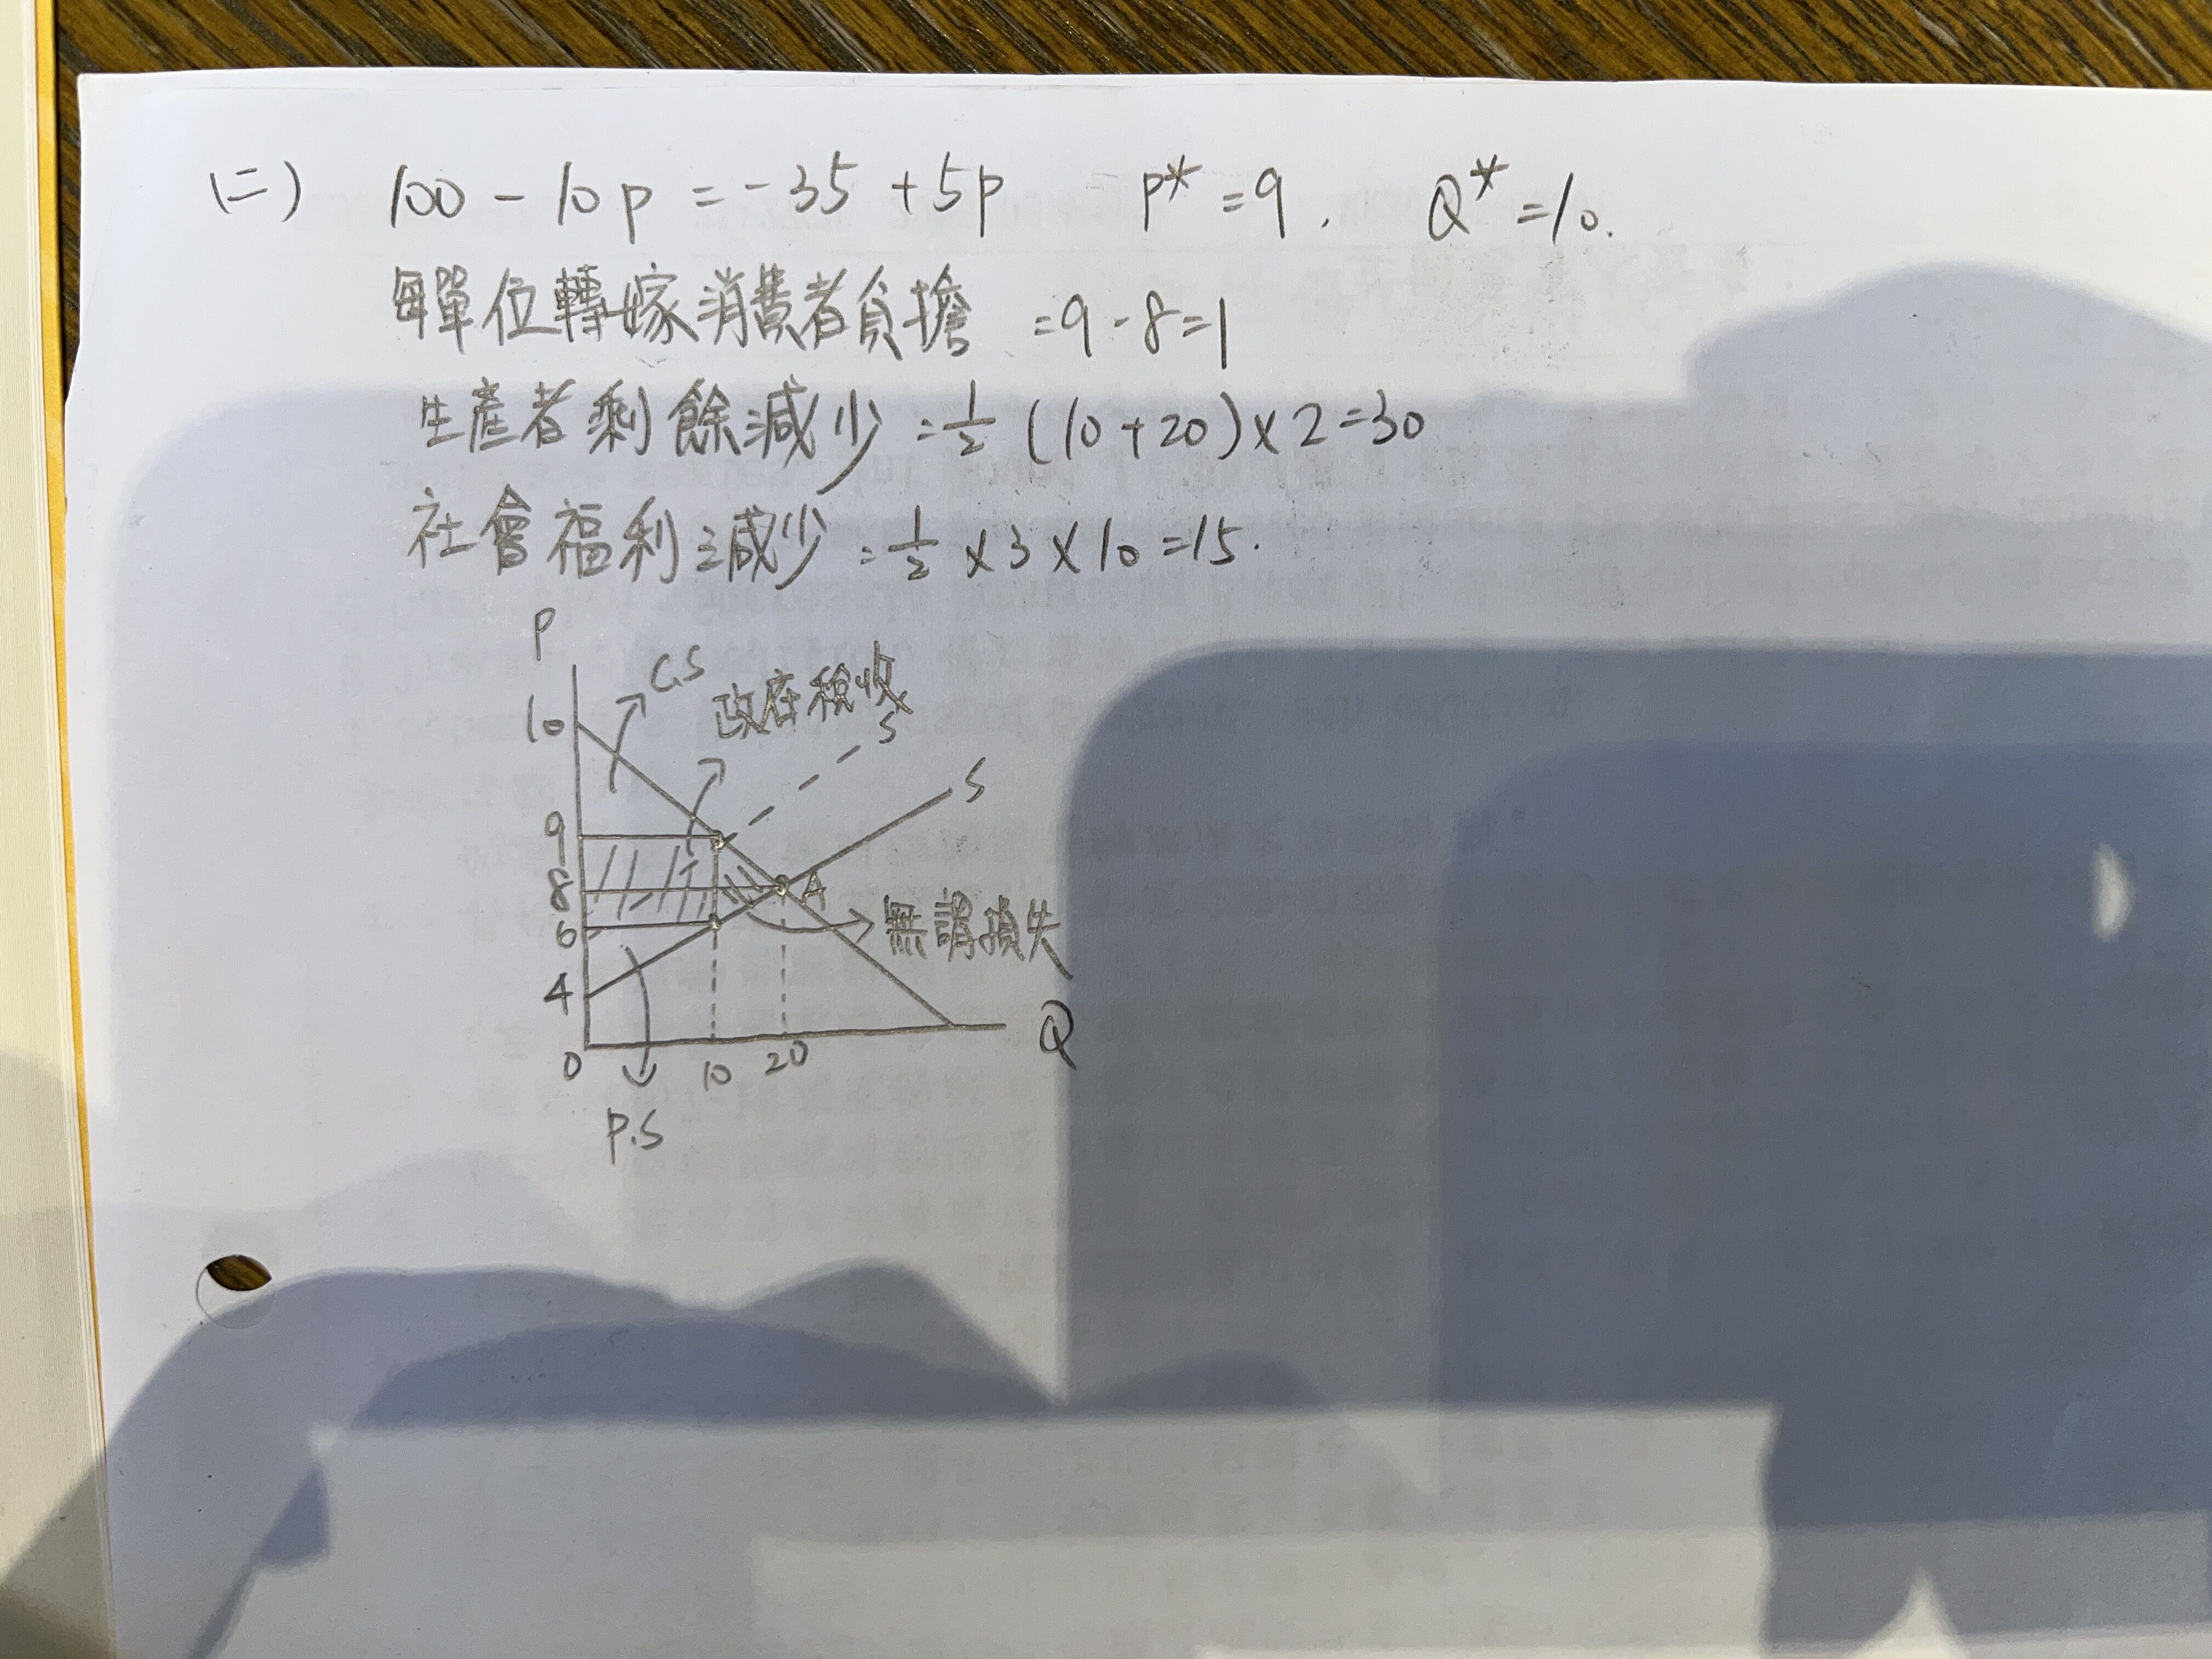 (二) 100 - 10p = -35 + 5p p* = 9, Q* = 10.
每單位轉嫁消費者負擔 = 9 - 8 = 1
生產者剩餘減少 = 1/2 (10 + 20) × 2 = 30
社會福利減少 = 1/2 × 3 × 10 = 15.
P
C.S
政府稅收
10
S
S
9
8
A
6
無謂損失
4
0
10
20
Q
P.S